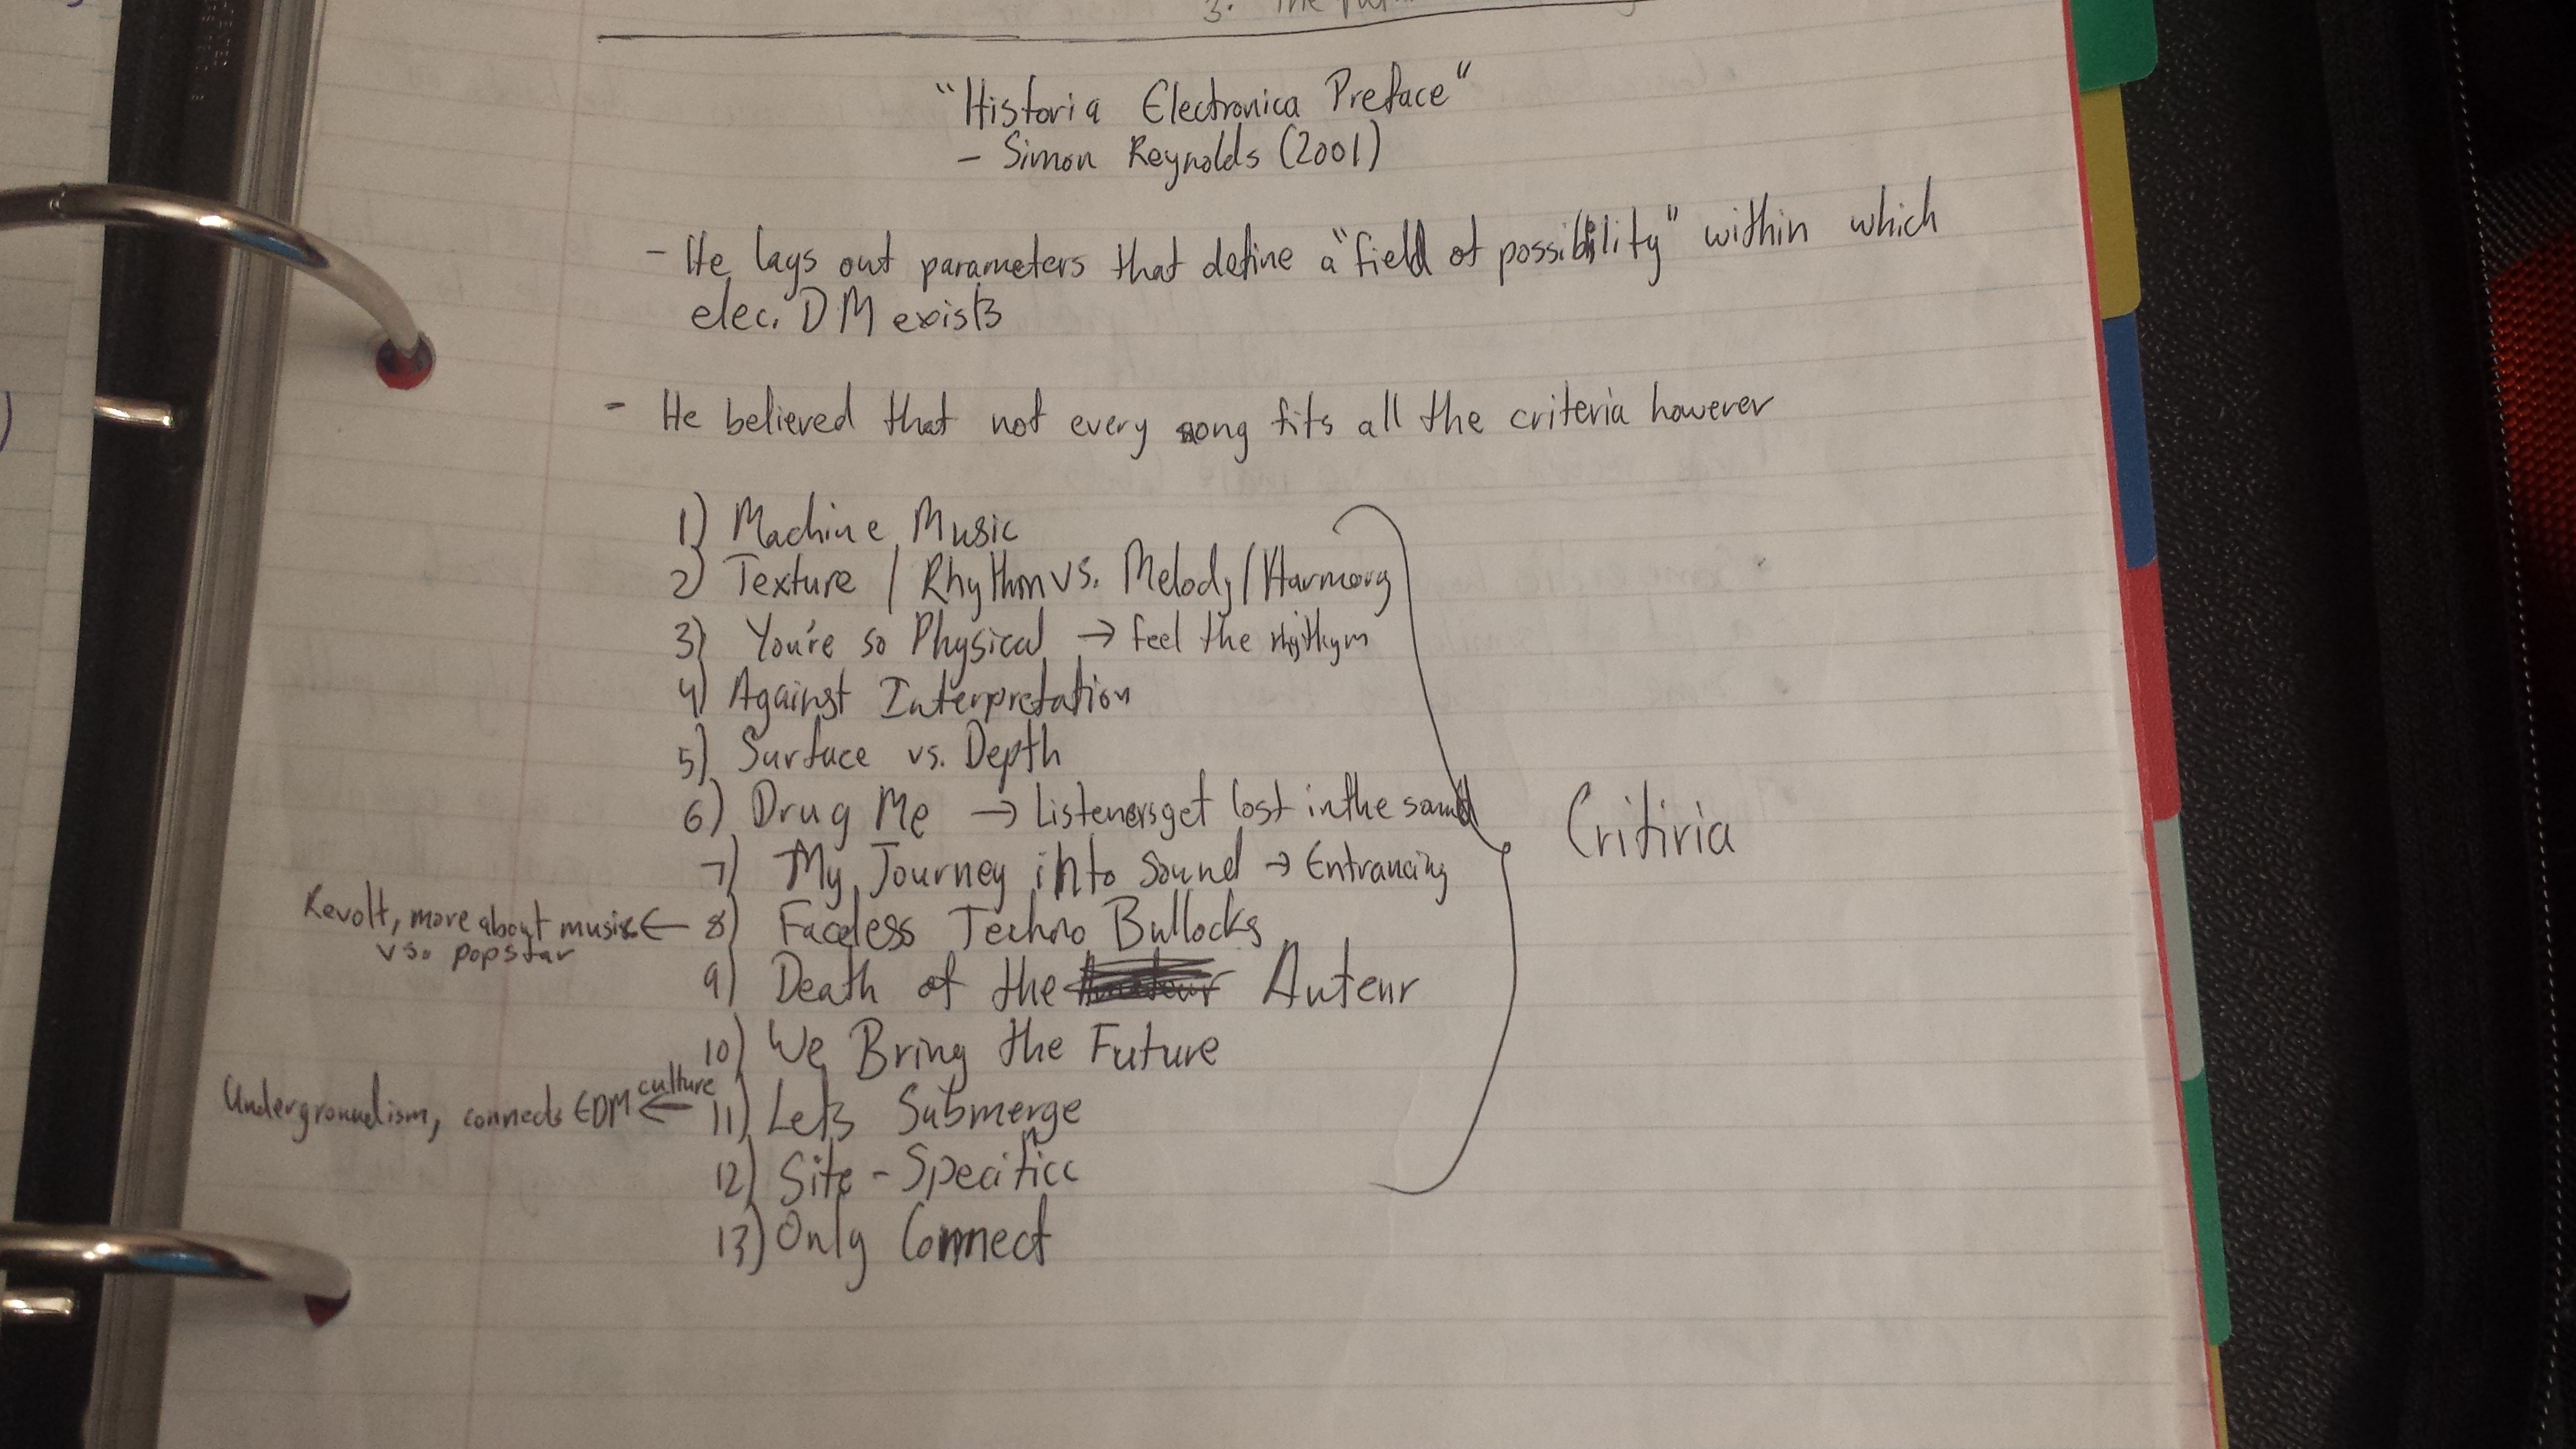 3. The
"Historia Electronica Preface"
- Simon Reynolds (2001)
- He lays out parameters that define a "field of possibility" within which
elec. DM exists
- He believed that not every song fits all the criteria however
1) Machine Music
2) Texture / Rhythm vs. Melody / Harmony
3) You're so Physical → feel the rhythym
4) Against Interpretation
5) Surface vs. Depth
6) Drug Me → Listeners get lost in the sound
7) My Journey into Sound → Entrancing
Revolt, more about music ← 8) Faceless Techno Bullocks
vs. popstar
9) Death of the Auteur
10) We Bring the Future
Undergroundism, connects EDM culture ← 11) Lets Submerge
12) Site-Specificc
13) Only Connect
Critiria